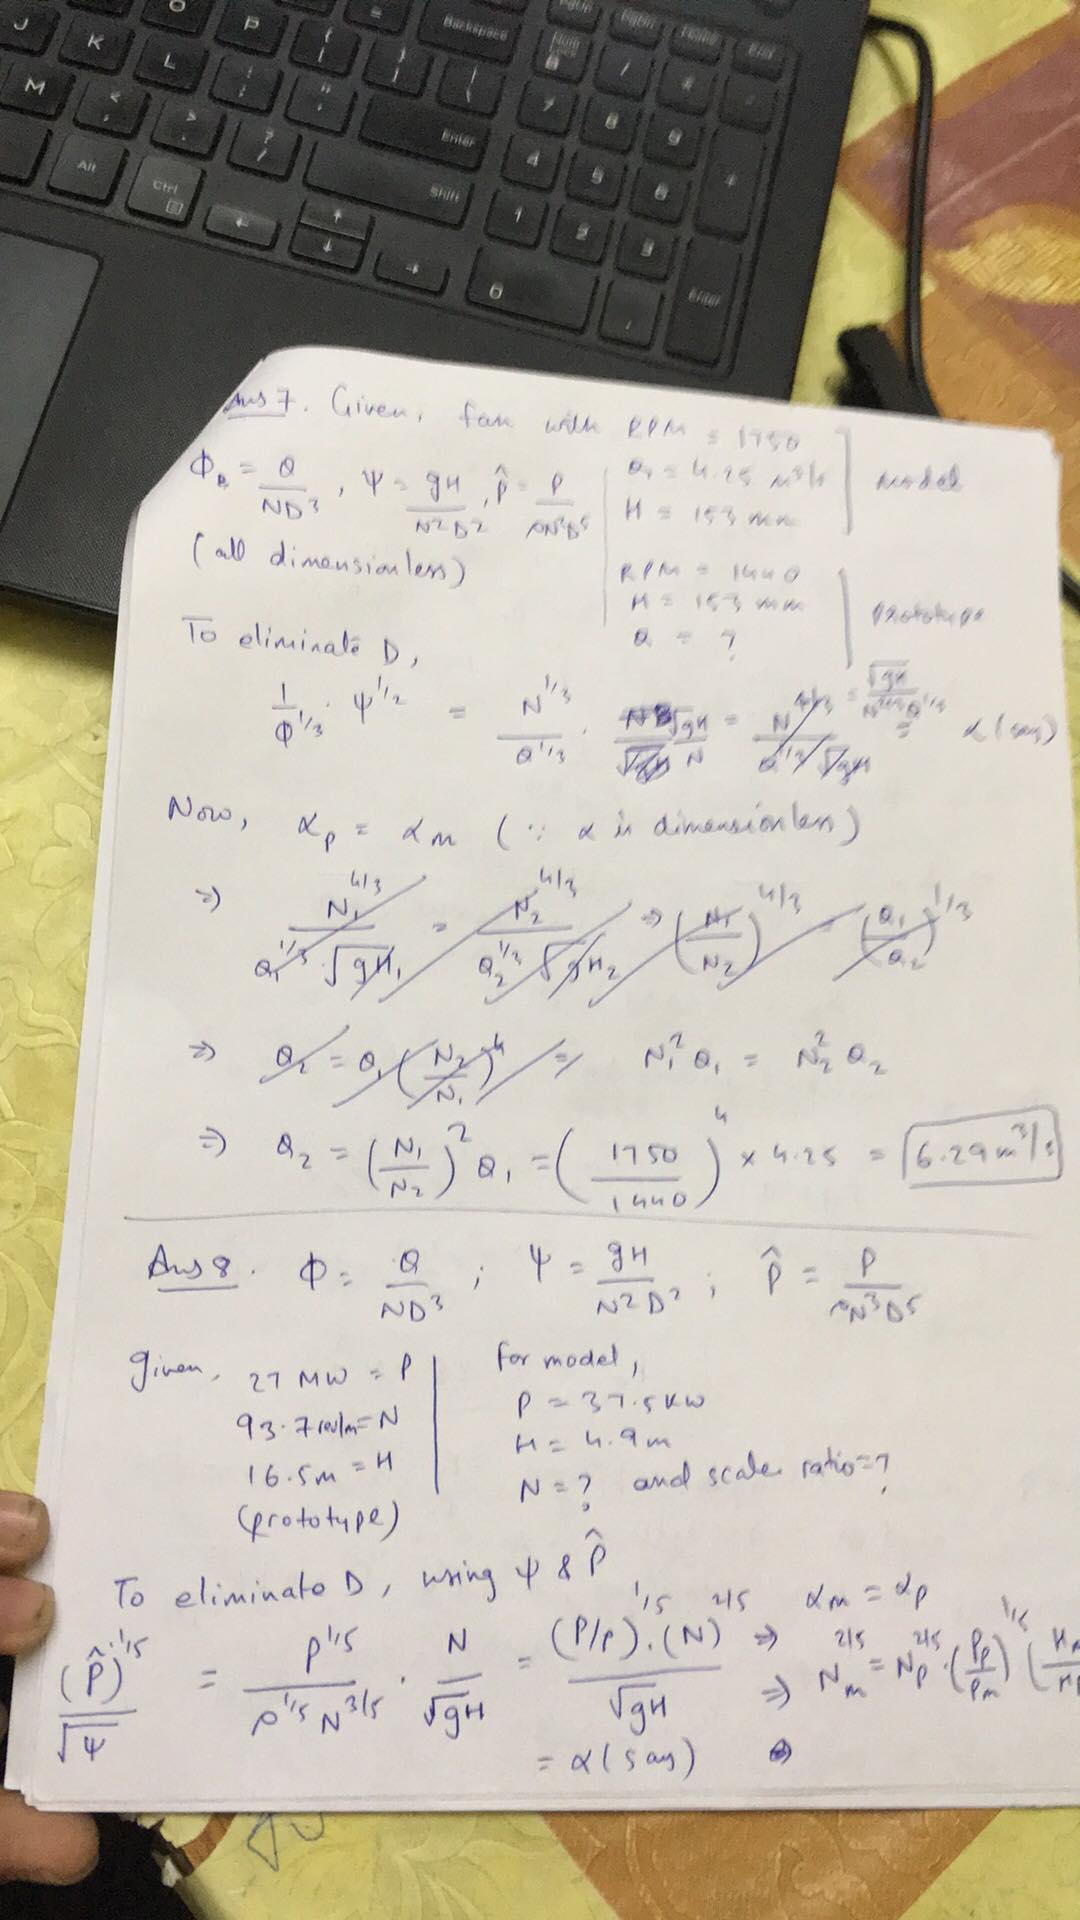 Ans 7. Given, fan with RPM = 1750
Q₁ = 4.25 m³/s
H = 153 mm
model
Φ = Q/ND³, Ψ = gH/N²D², P̂ = P/ρN³D⁵
(all dimensionless)
RPM = 1440
H = 153 mm
Q = ?
prototype
To eliminate D,
1/Φ^1/3 · Ψ^1/2 = N^1/3/Q^1/3 · √gH/N = √gH/N^2/3 Q^1/3 = α (say)
Now, αp = αm (∵ α is dimensionless)
⇒ N₁^4/3/Q₁^1/3 √gH₁ = N₂^4/3/Q₂^1/3 √gH₂ ⇒ (N₁/N₂)^4/3 = (Q₁/Q₂)^1/3
⇒ Q₂ = Q₁ (N₂/N₁)^4 ⇒ N₁² Q₁ = N₂² Q₂
⇒ Q₂ = (N₁/N₂)² Q₁ = (1750/1440)^4 × 4.25 = 6.29 m³/s
Ans 8. Φ = Q/ND³ ; Ψ = gH/N²D² ; P̂ = P/ρN³D⁵
Given, 27 MW = P
93.7 rev/m = N
16.5m = H
(prototype)
for model,
P = 37.5 KW
H = 4.9 m
N = ? and scale ratio = ?
To eliminate D, using Ψ & P̂
(P̂)^1/5/√Ψ = P^1/5/ρ^1/5 N^3/5 · N/√gH = (P/ρ)^1/5 · (N)^2/5/√gH ⇒ αm = αp
⇒ Nm^2/5 = Np^2/5 · (Pp/Pm)^1/5 (
= α (say)
Enter
Shift
Alt
Ctrl
Backspace
Enter
J
K
L
M
O
P